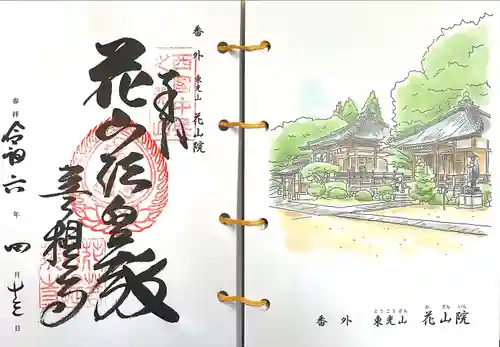 番外 東光山 花山院
奉拝
花山法皇殿
菩提寺
参拝 令和 六 年 四 月 日
とうこうざん か ざん いん
番外 東光山 花山院